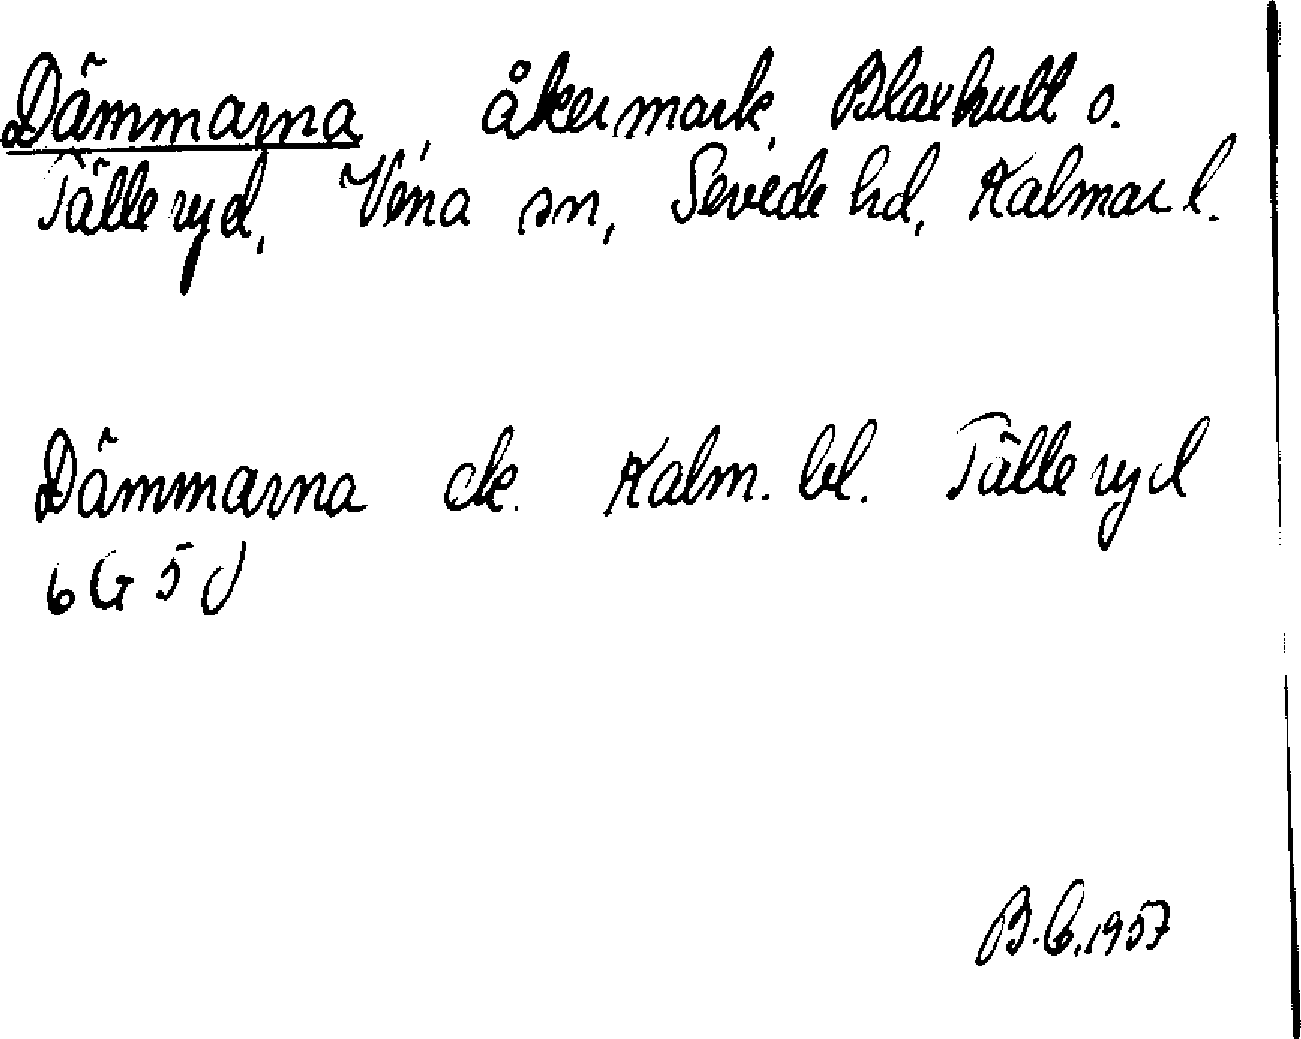 Dämmarna, åkermark, Blaxhult o.
Tälleryd, Vena sn, Sevede hd, Kalmar l.
Dämmarna ek. Kalm. bl. Tälleryd
6 G 5 d
B.C. 1957